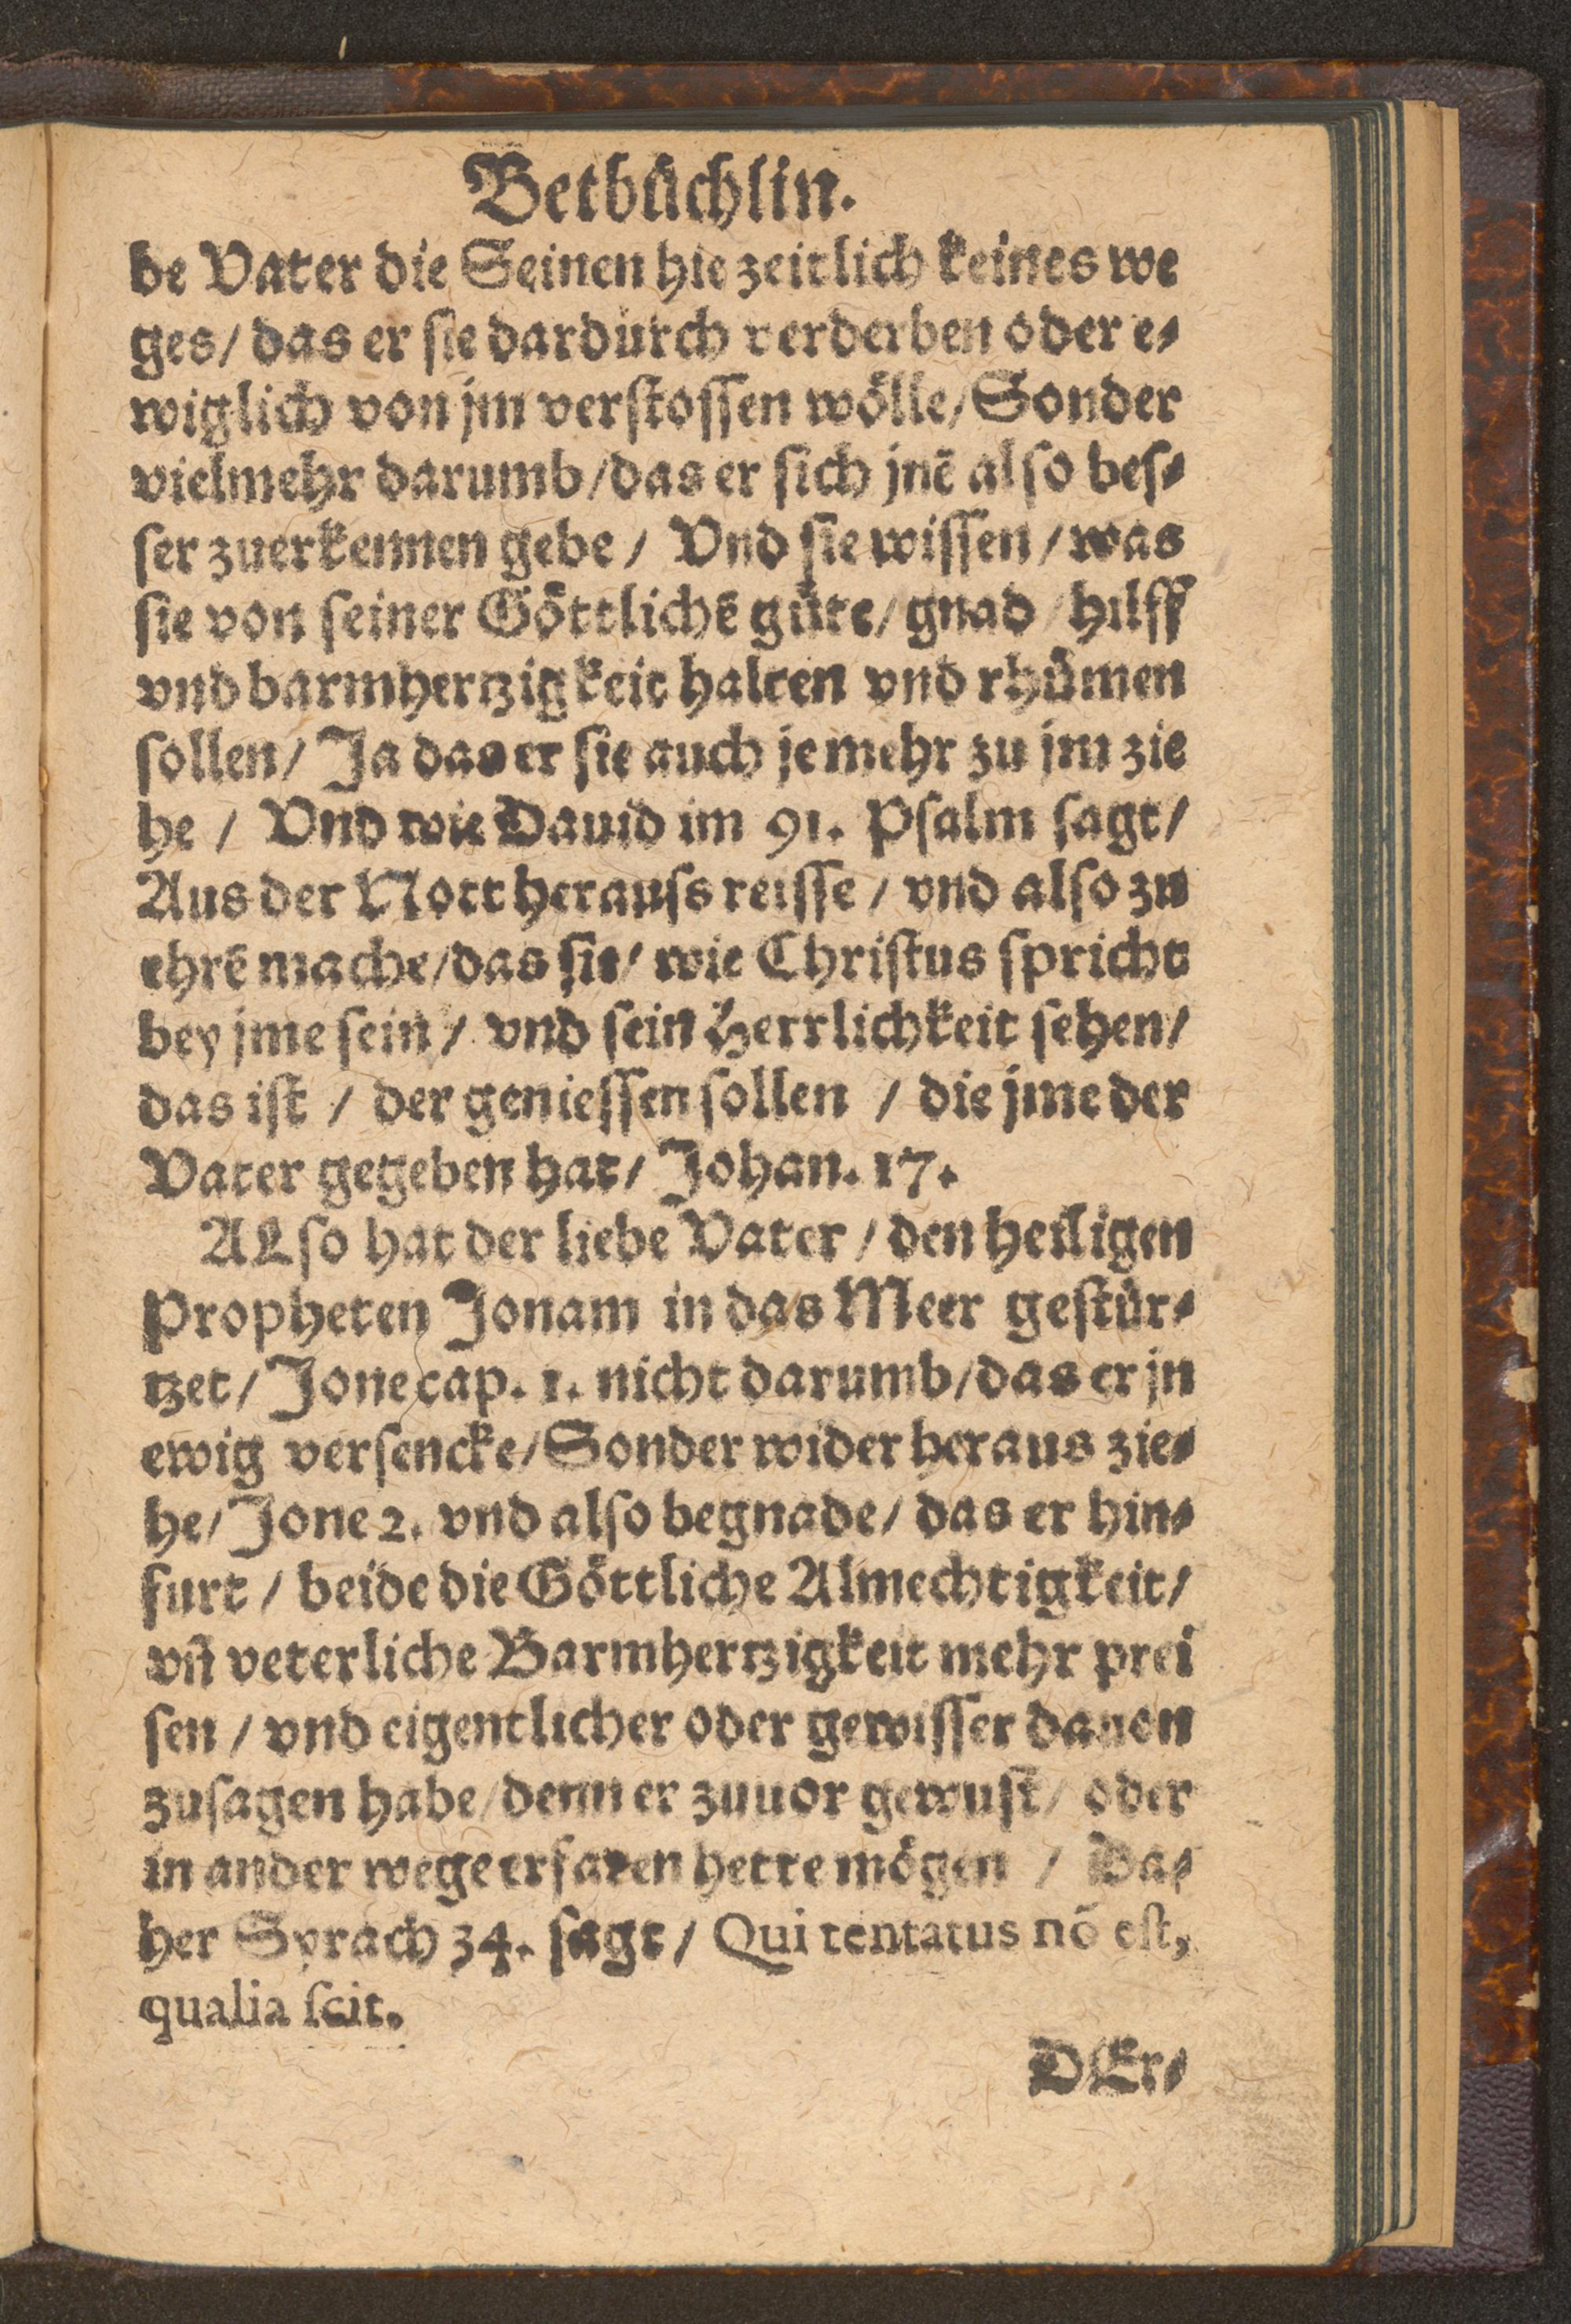 Betbuͤchlin.
de Vater die Seinen hie zeitlich keines we
ges/ das er sie dardurch verderben oder e⸗
wiglich von jm verstossen woͤlle/ Sonder
vielmehr darumb/das er sich jnē also bes⸗
ser zuerkennen gebe / Vnd sie wissen / was
sie von seiner Goͤttlichē guͤte/ gnad / hilff
vnd barmhertzigkeit halten vnd rhuͤmen
sollen/ Ja das er sie auch je mehr zu jm zie
he / Vnd wie Dauid im 91. Psalm sagt/
Aus der Nott herauss reisse / vnd also zu
ehrē mache/das sie/ wie Christus spricht
bey jme sein / vnd sein Herrlichkeit sehen/
das ist / der geniessen sollen / die jme der
Vater gegeben hat/ Johan. 17.
ALso hat der liebe Vater / den heiligen
Propheten Jonam in das Meer gestuͤr⸗
tzet/ Jone cap. 1. nicht darumb/das er jn
ewig versencke/Sonder wider heraus zie⸗
he/ Jone 2. vnd also begnade/ das er hin⸗
furt / beide die Goͤttliche Almechtigkeit/
vñ veterliche Barmhertzigkeit mehr prei
sen / vnd eigentlicher oder gewisser dauon
zusagen habe/denn er zuuor gewust/ oder
in ander wege erfaren hette moͤgen / Da⸗
her Syrach 34. sagt / Qui tentatus nō est,
qualia scit.
DEr⸗